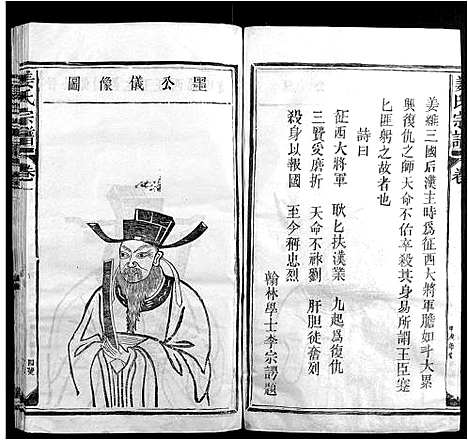 姜氏宗譜
卷
姜維三國后漢主時爲征西大將軍膽如斗大累
興復仇之師天命不佑卒殺其身易所謂王臣蹇
匕匪躬之故者也
詩曰
征西大將軍 耿匕扶漢業 九起爲復仇
三賢受磨折 天命不祚劉 肝胆徒奮列
殺身以報國 至今稱忠烈
翰林學士李宗諤題
公儀像圖
姜氏宗譜
卷一